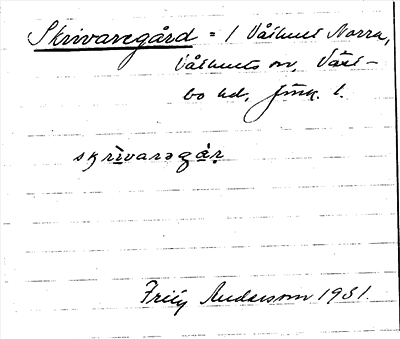 Skrivaregård = 1 Våthult Norra,
Våthults sn, Väst-
bo hd, Jönk. l.
skrivarəgår
Frity Andersson 1931.